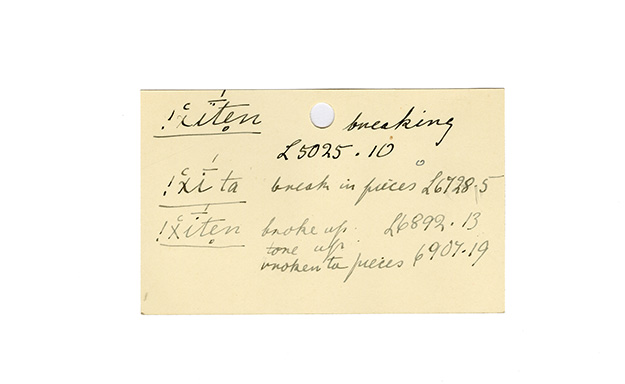 !x̯ῑten̥ breaking
L5025.10
!x̯ῑ ta break in pieces L6728.5
!x̯ῑten̥ broke up. L6892.13
tore up.
broken to pieces 6907.19